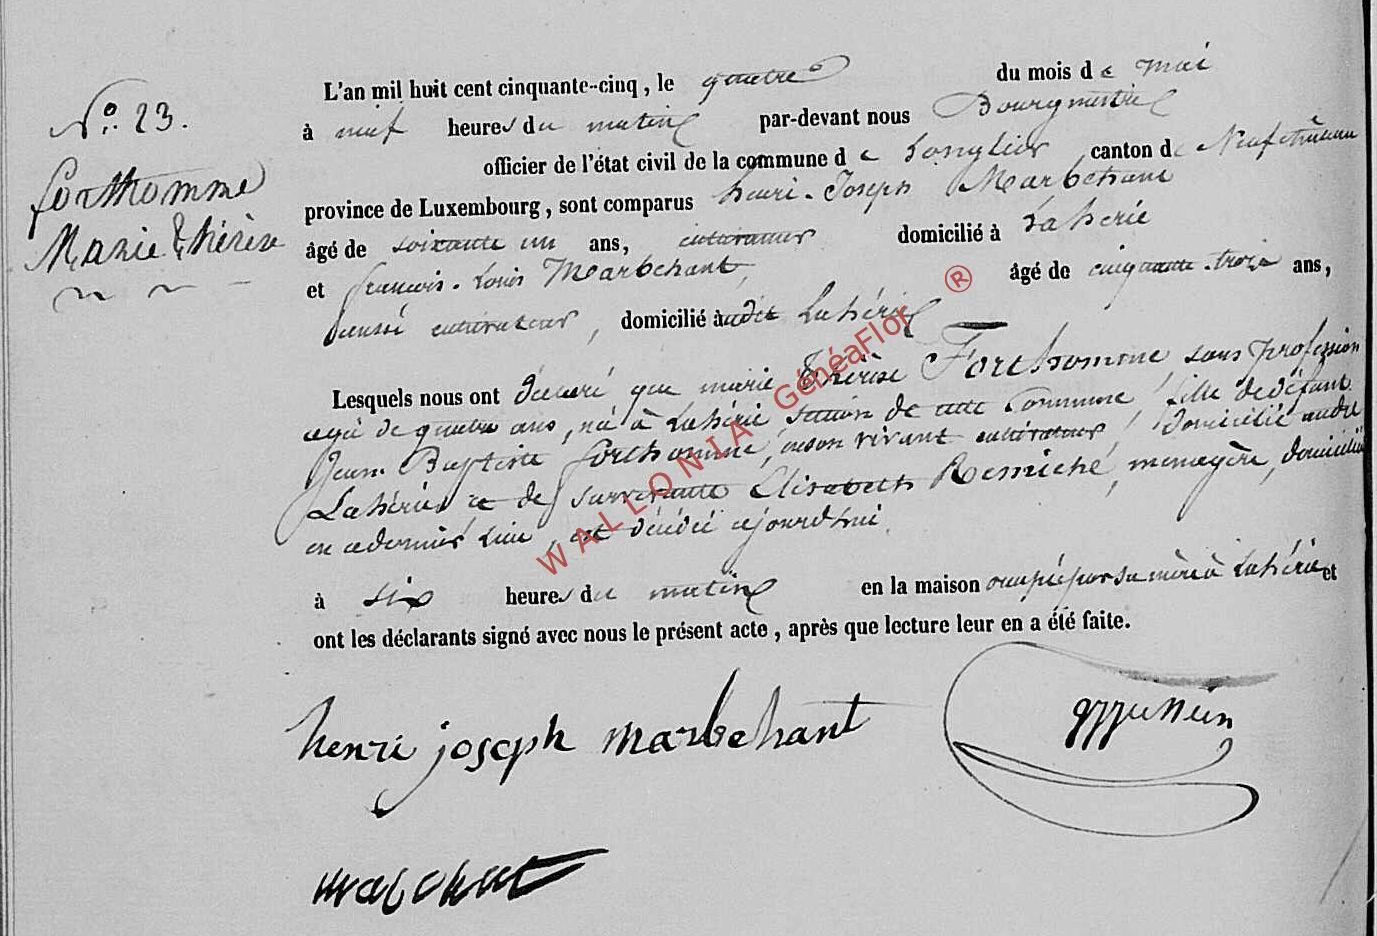 N° 23.
forthomme
Marie Thérèse
L'an mil huit cent cinquante-cinq, le quatre du mois de Mai
à neuf heures du matin par-devant nous Bourgmestre
officier de l'état civil de la commune de Longlier canton de Neufchâteau
province de Luxembourg, sont comparus henri-Joseph Marbehant
âgé de soixante un ans, cultivateur domicilié à Lahérie
et françois-Louis Marbehant, âgé de cinquante-trois ans,
aussi cultivateur, domicilié audit Lahérie
Lesquels nous ont déclaré que marie Thérèse Forthomme, sans profession
agée de quatre ans, née à Lahérie section de cette Commune, fille de défunt
Jean-Baptiste forthomme, en son vivant cultivateur, domicilié audit
Lahérie et de survivante Elisabeth Remiche, menagère, domiciliée
en ce dernier lieu, est décédée aujourd'hui
à six heures du matin en la maison occupée par sa mère à Lahérie et
ont les déclarants signé avec nous le présent acte, après que lecture leur en a été faite.
henri joseph marbehant
WALLONIA GénéaFlor ®